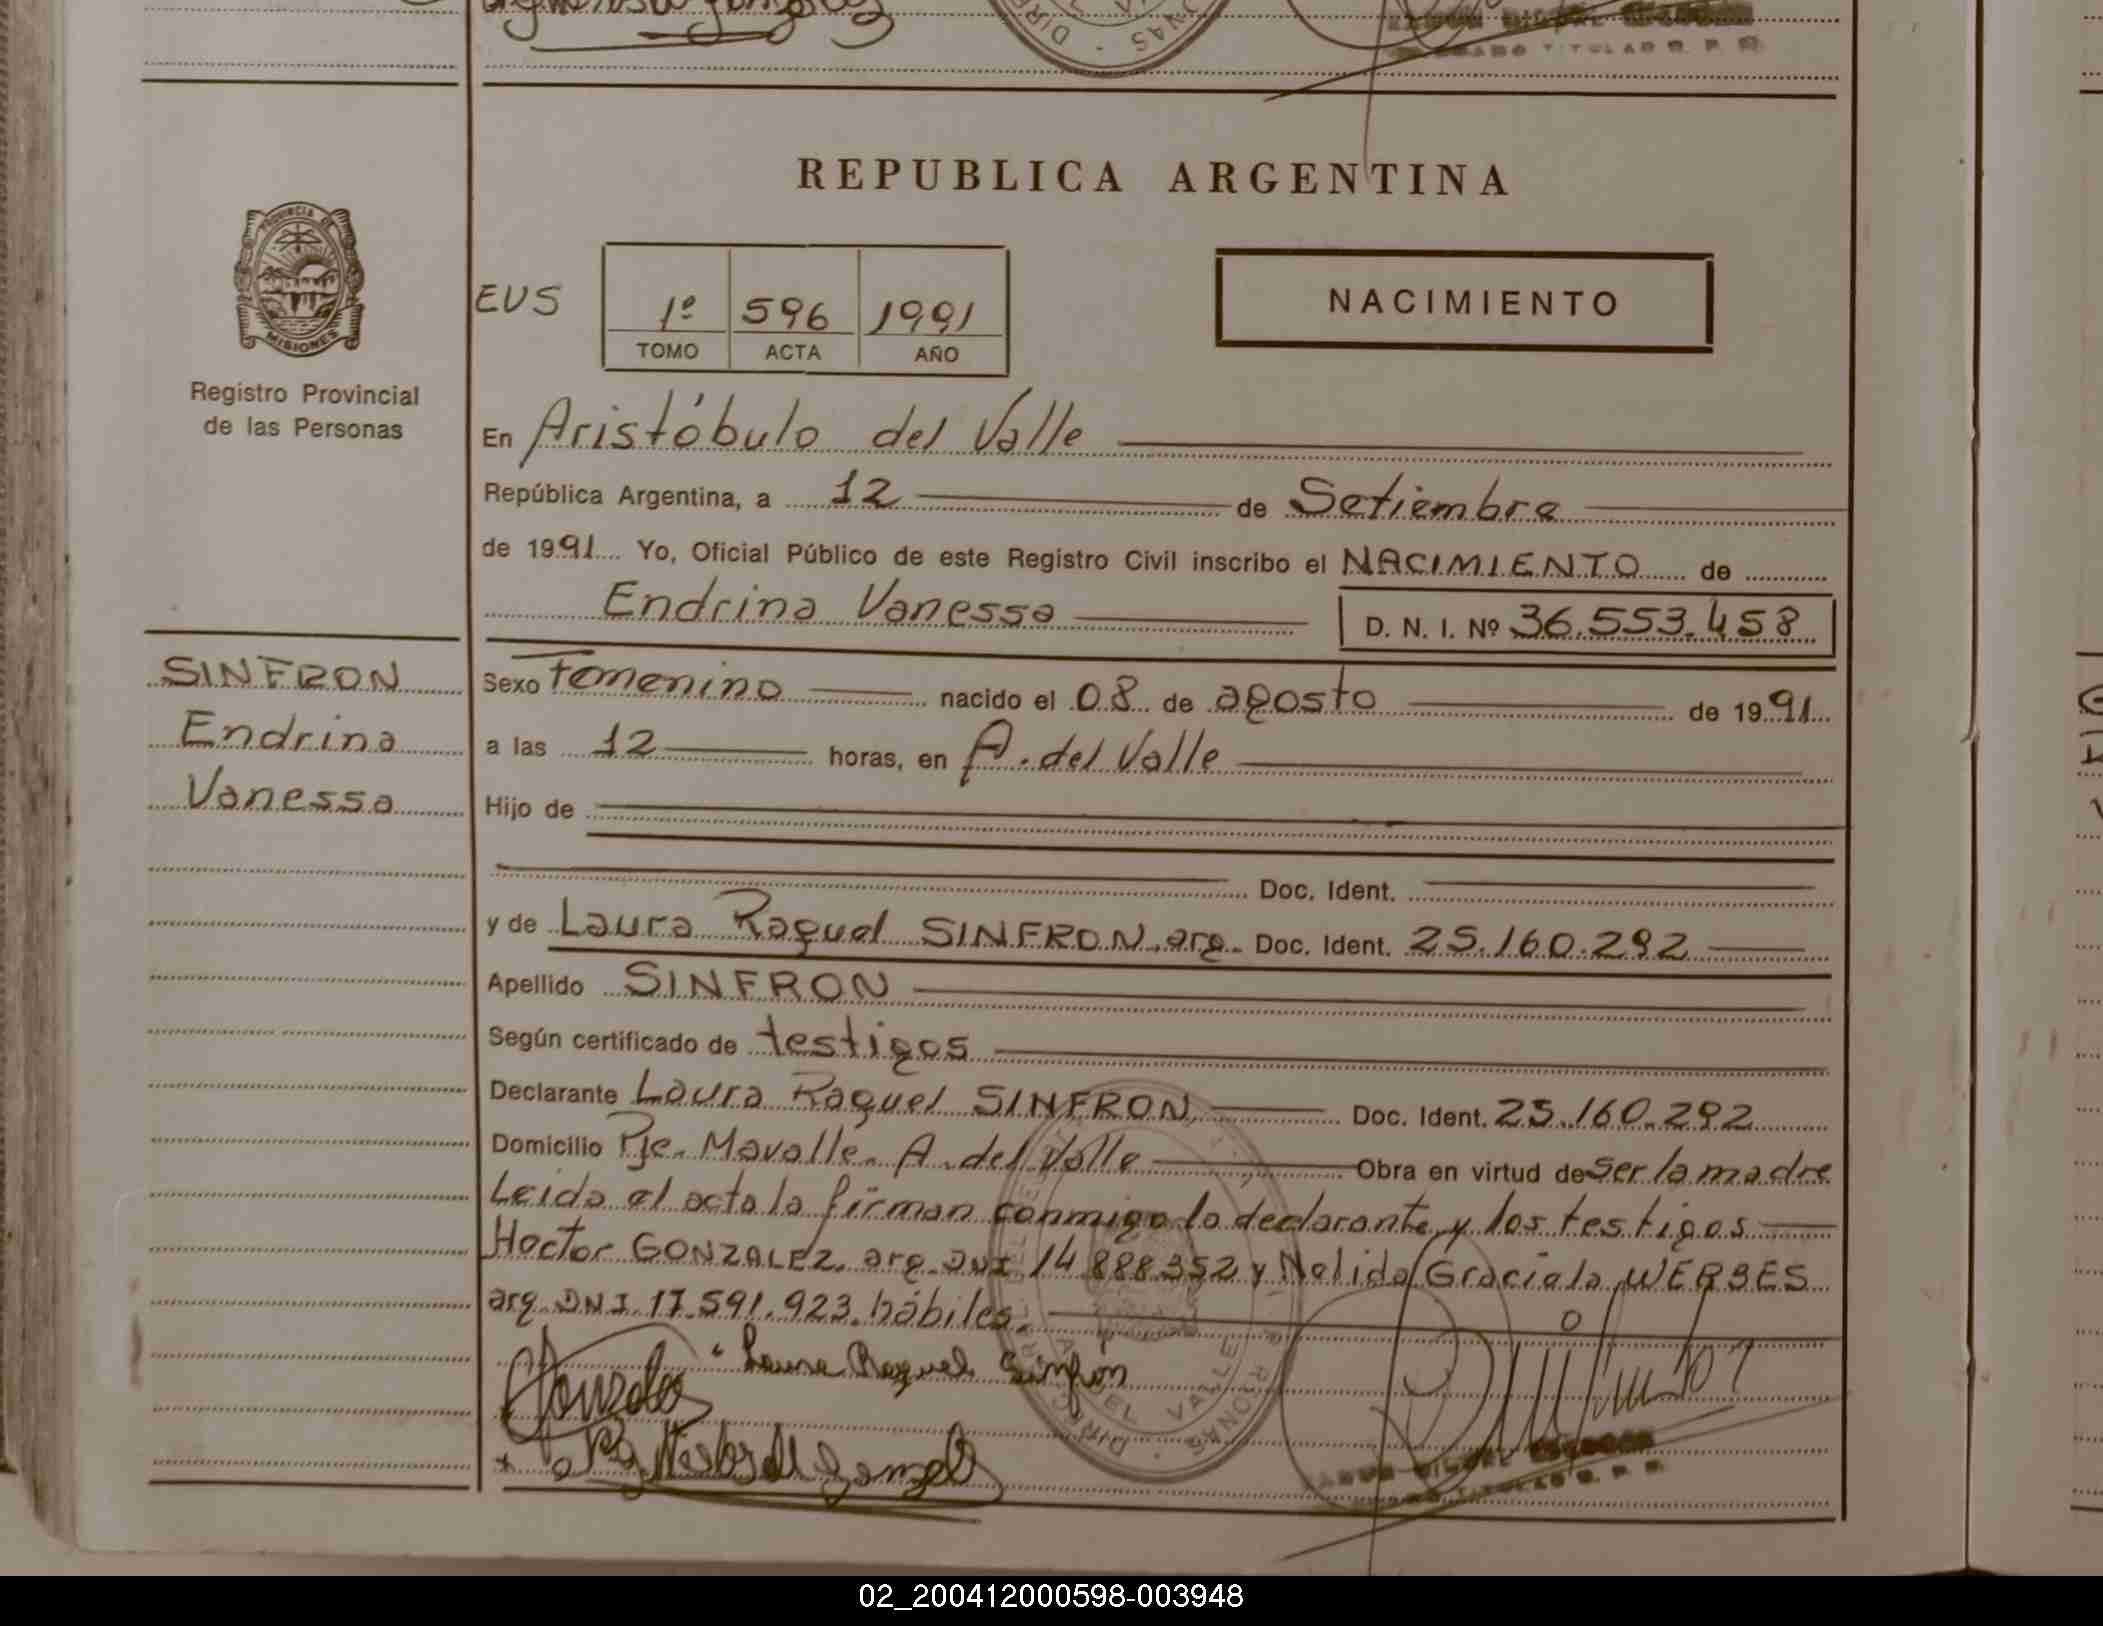 REPUBLICA ARGENTINA
PROVINCIA DE
MISIONES
Registro Provincial
de las Personas
EUS
1º 596 1991
TOMO ACTA AÑO
NACIMIENTO
En Aristóbulo del Valle
República Argentina, a 12 de Setiembre
de 1991 Yo, Oficial Público de este Registro Civil inscribo el NACIMIENTO de
Endrina Vanessa D. N. I. Nº 36.553.458
SINFRON
Endrina
Vanessa
Sexo Femenino nacido el 08 de agosto de 1991
a las 12 horas, en A. del Valle
Hijo de
Doc. Ident.
y de Laura Raquel SINFRON, arg. Doc. Ident. 25.160.292
Apellido SINFRON
Según certificado de testigos
Declarante Laura Raquel SINFRON Doc. Ident. 25.160.292
Domicilio Pje. Mavalle. A. del Valle Obra en virtud de ser la madre
Leida el acta la firman conmigo la declarante y los testigos
Hector GONZALEZ. arg. DNI 14.888.352 y Nelida Graciela WERBES
arg. DNI 17.591.923. hábiles.
Laura Raquel Sinfron
Gonzalez
DEL VALLE
02_200412000598-003948